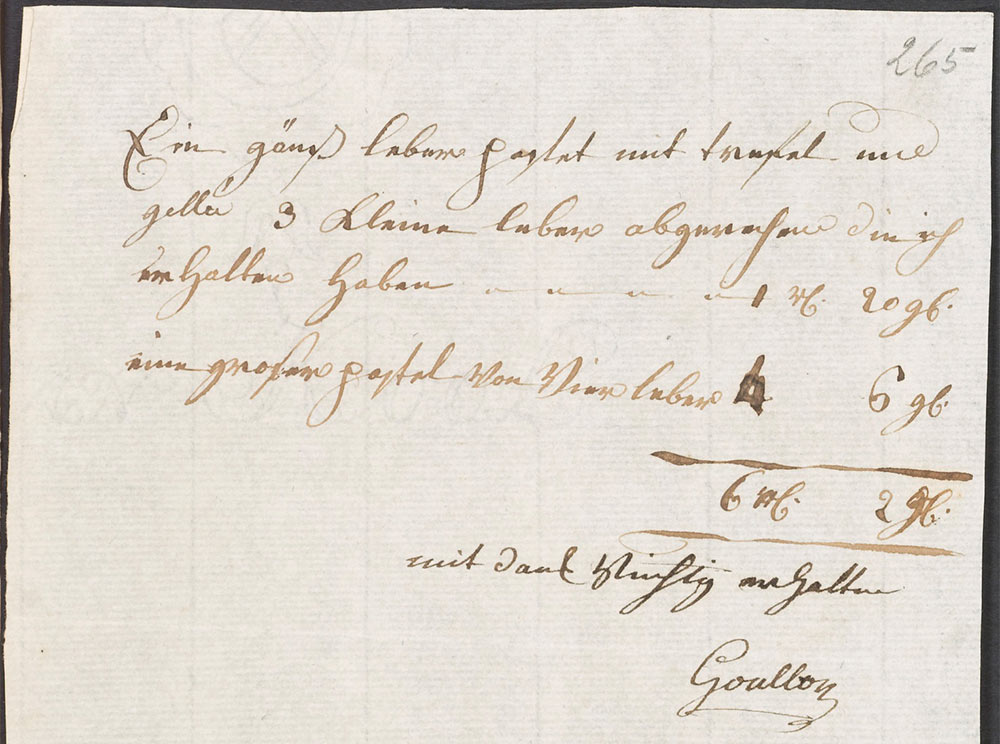 265
Ein gäns leber pastet mit trufel und
gellé 3 kleine leber abgerechen die ich
erhalten haben — — — — 1 rl. 20 gl.
eine groser pastet von Vier leber 4 6 gl.
6 rl. 2 gl.
mit dank Richtig erhalten
Goullon